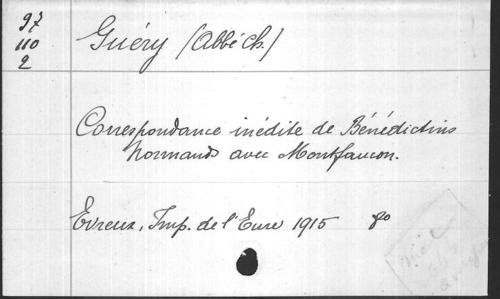 97
110
2
Guéry (Abbé Ch.)
Correspondance inédite de Bénédictins
Normands avec Montfaucon.
Evreux, Imp. de l'Eure 1915 8o